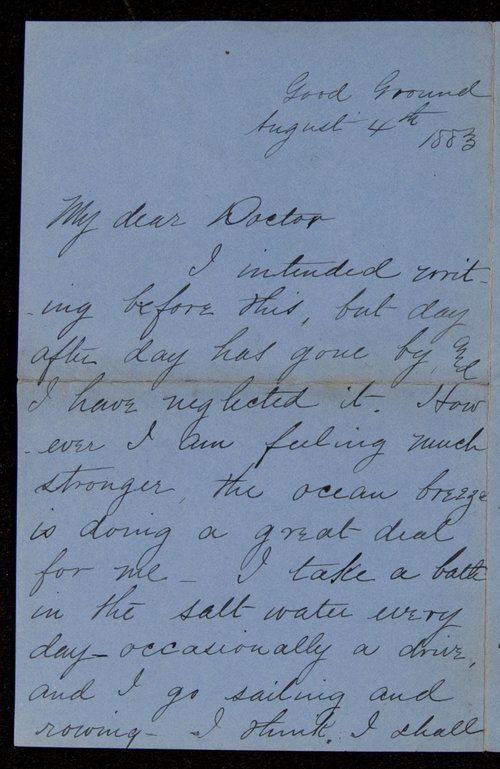 Good Ground
August 4th
1883
My dear Doctor
I intended writ-
-ing before this, but day
after day has gone by, and
I have neglected it. How
-ever I am feeling much
stronger, the ocean breeze
is doing a great deal
for me - I take a bath
in the salt water every
day - occasionally a drive,
and I go sailing and
rowing - I think, I shall